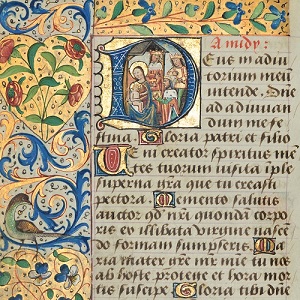 A midy:
Deus in adiu
torium meu
intende. Dñe
ad adiuuan
dum me fe
stina. Gloria patri et filio
Veni creator spiritus mē
tes tuorum visita iple
superna gr̃a que tu creasti
pectora. Memento salutis
auctor qd nr̃a quondā corpo
ris ex illibata virgine nascē
do formam sumpseris. Ma
ria mater gr̃e tu nos
ab hoste protege et hora mortis
suscipe Gloria tibi dñe